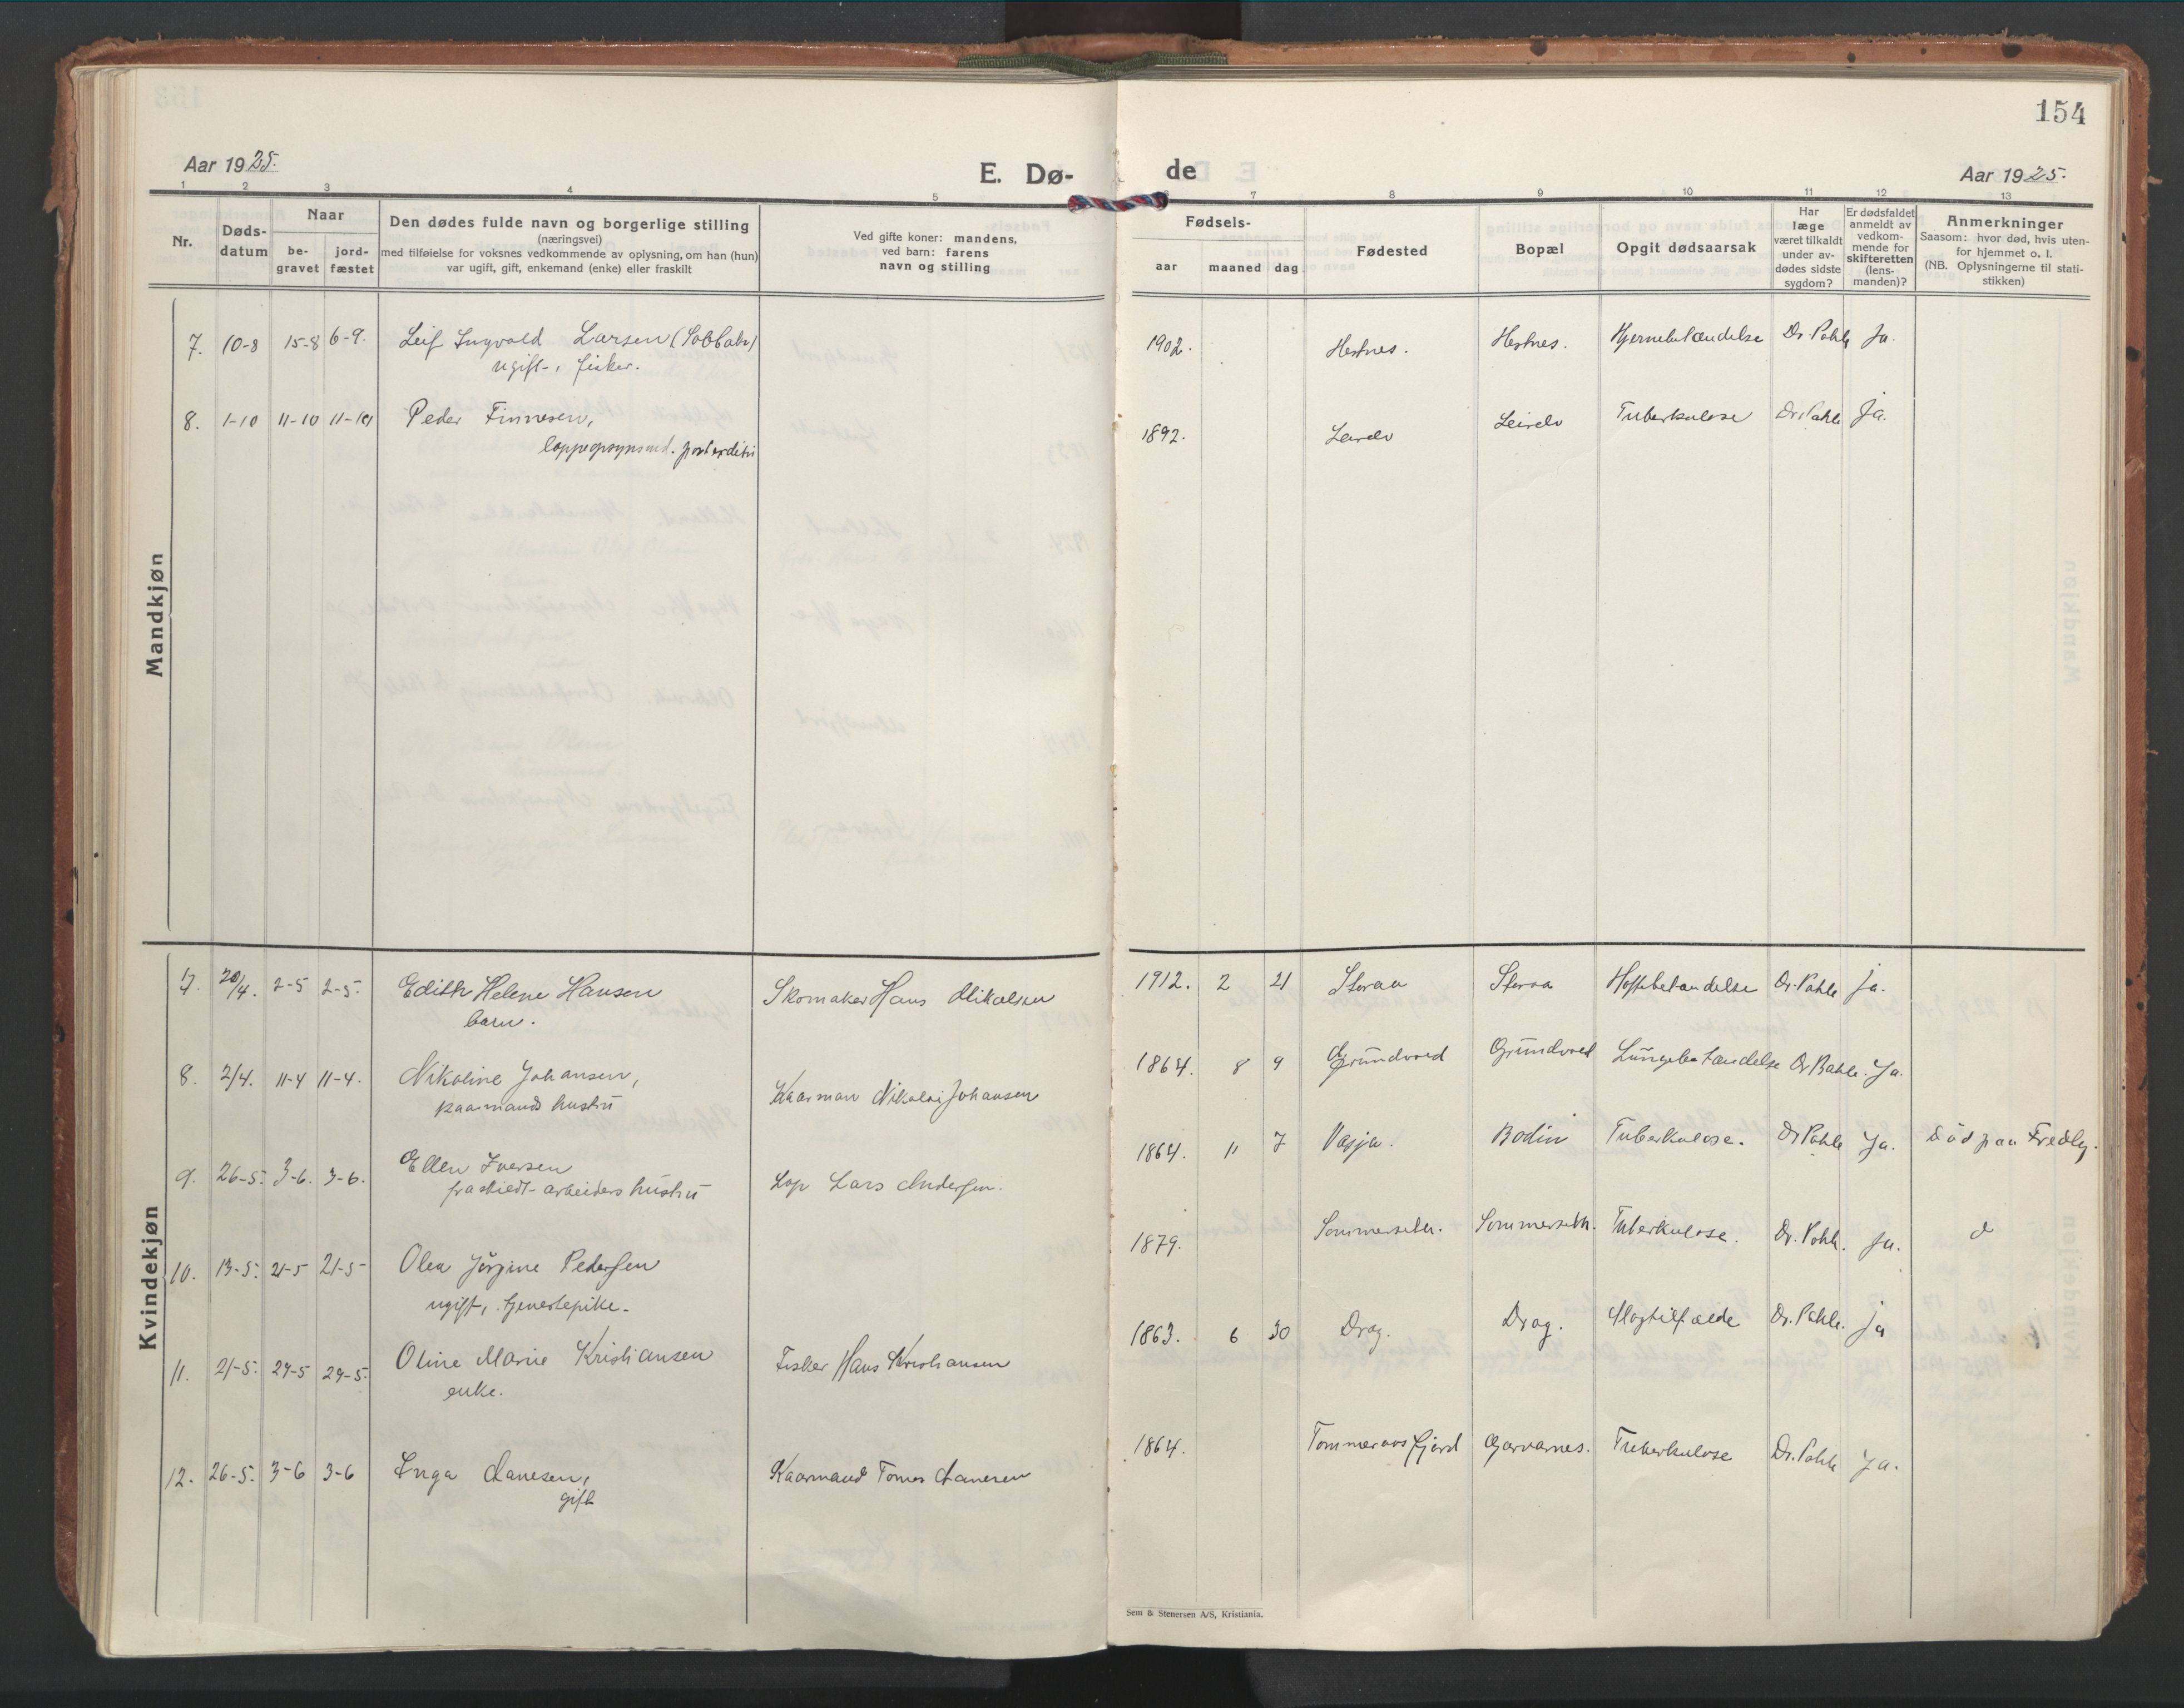 154
Aar 1925.
E. Dø-
de
Aar 1925.
1 2 3 4 5 6 7 8 9 10 11 12 13
Nr.
Døds-
datum
Naar
be-
gravet
jord-
fæstet
Den dødes fulde navn og borgerlige stilling
(næringsvei)
med tilføielse for voksnes vedkommende av oplysning, om han (hun)
var ugift, gift, enkemand (enke) eller fraskilt
Ved gifte koner: mandens,
ved barn: farens
navn og stilling
Fødsels-
aar maaned dag
Fødested
Bopæl
Opgit dødsaarsak
Har
læge
været tilkaldt
under av-
dødes sidste
sygdom?
Er dødsfaldet
anmeldt av
vedkom-
mende for
skifteretten
(lens-
manden)?
Anmerkninger
Saasom: hvor død, hvis uten-
for hjemmet o. l.
(NB. Oplysningerne til stati-
stikken)
Mandkjøn
7. 10-8 15-8 6-9. Leif Ingvald Larsen 1902. Hestnes. Hestnes. Hjernebetændelse Dr. Pahle Ja.
ugift, fisker.
8. 1-10 11-10 11-10 Peder Finnesen, 1892. Leirelv Leirelv Tuberkulose Dr. Pahle Ja.
Kvindekjøn
7. 20/4. 2-5 2-5. Edith Helene Hansen Skomaker Hans Mikalsen 1912. 2 21 Storaa Storaa Hoftebetændelse Dr. Pahle ja.
barn.
8. 2/4. 11-4 11-4. Nikoline Johansen, Kaarman Nikolai Johansen 1864. 8 9 Grundvord Grundvord Lungebetændelse Dr Pahle. Ja.
kaarmands hustru
9. 26-5. 3-6. 3-6. Ellen Iversen Lap Lars Andersen. 1864. 11 7 Vasja. Bodin Tuberkulose. Dr Pahle Ja. Død paa Fredly.
fraskiedt arbeiders hustru
10. 13-5. 21-5 21-5 Olea Jörgine Pedersen 1879. Sommerseth. Sommerseth. Tuberkulose. Dr. Pahle. Ja.
ugift, tjenestepike.
11. 21-5. 29-5 29-5. Oline Marie Kristiansen Fisker Hans Kristiansen 1863. 6 30 Drag. Drag. Slagtilfælde Dr. Pahle. ja
enke.
12. 26-5. 3-6 3-6 Inga Danesen, Kaarmand Tomes Danesen 1864. Tommeraasfjord Gjervarnes. Tuberkulose Dr. Pahle Ja.
gift
Sem & Stenersen A/S, Kristiania.